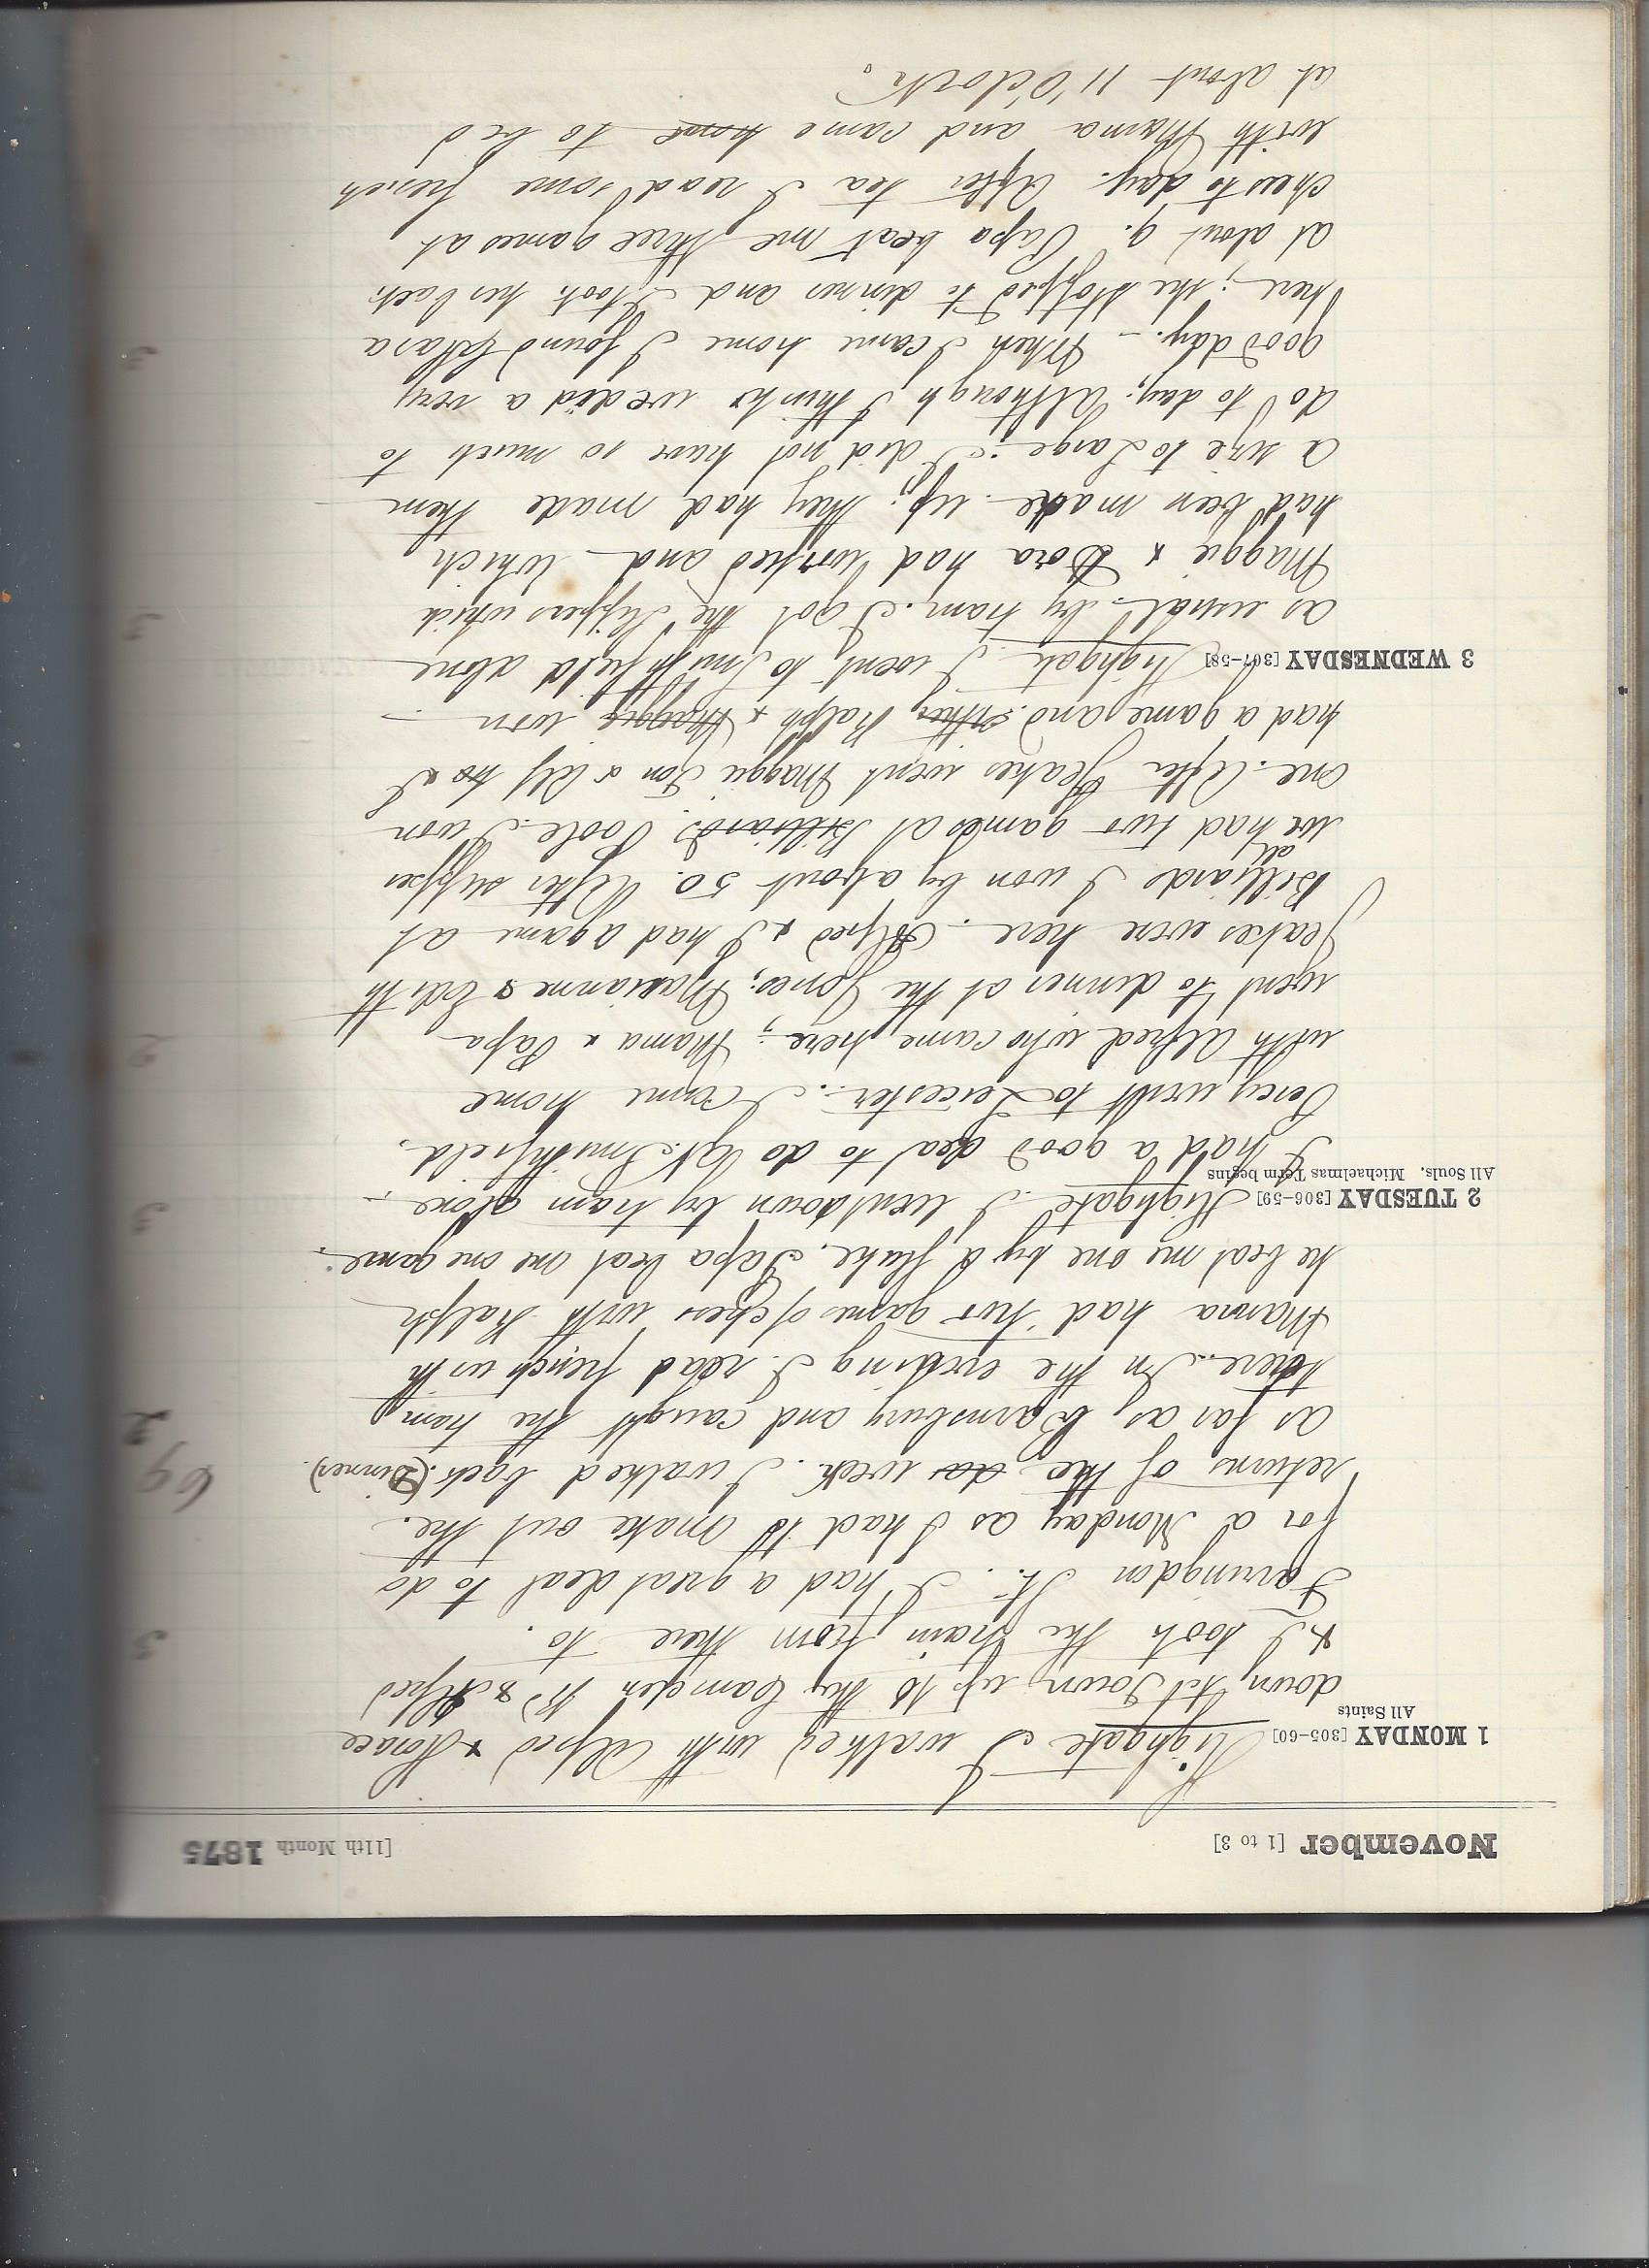 November [1 to 3] [11th Month 1875
1 MONDAY [305-60] Highgate I walked with Alfred & Horace
All Saints
down to Town, up to the Camden Rd & Alfred
& I took the train from there to
Farringdon St. I had a great deal to do
for a Monday as I had to make out the
returns of the week. I walked back (Dinner).
as far as Barnsbury and caught the tram
there. In the evening I read french with
Mama had two games of chess with Ralph
he beat me one by a fluke. Papa beat me one game.
2 TUESDAY [306-59] Highgate I went down by tram alone
All Souls. Michaelmas Term begins
I had a good deal to do at Smithfield.
Percy went to Leicester. I came home
with Alfred who came here; Mama & Papa
went to dinner at the Jones; Marianne & Edith
Jeakes were here. Alfred & I had a game at
Billiards I won by about 50. After supper
all
we had two games at Billiards Poole. I won
one. After Jeakes went Maggie Tom & I
had a game, and Ralph & Maggie won
3 WEDNESDAY [307-58] Highgate I went to Smithfield alone
as usual by tram. I got the slippers which
Maggie & Dora had worked and which
had been made up; they had made them
a size to Large. I did not have so much to
do to day; Although I think we did a very
good day. When I came home I found Clara
here; she stopped to dinner and I took her back
at about 9. Papa beat me three games at
chess to day. After tea I read some french
with Mama and came home to bed
at about 11 O'clock.
69